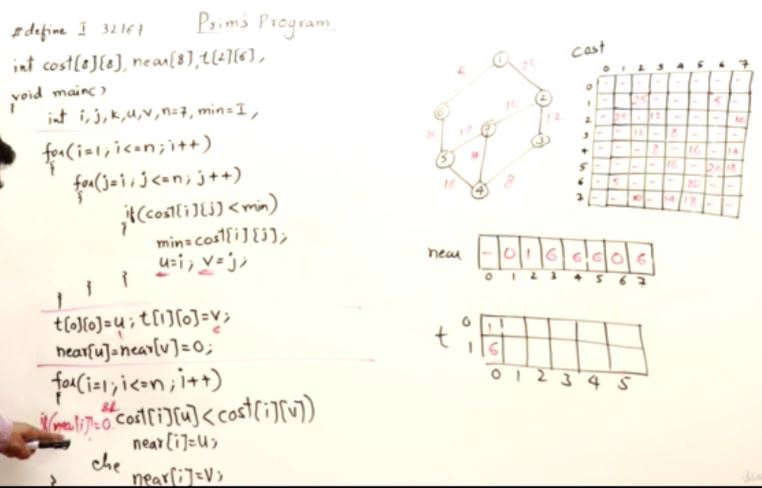 Prim's Program
#define I 32767
int cost[8][8], near[8], t[2][6];
void main()
{ int i, j, k, u, v, n=7, min=I;
for(i=1; i<=n; i++)
{
for(j=i; j<=n; j++)
{
if(cost[i][j]<min)
{
min=cost[i][j];
u=i; v=j;
}
}
}
t[0][0]=u; t[1][0]=v;
1 6
near[u]=near[v]=0;
for(i=1; i<=n; i++)
{
if(near[i]!=0 && cost[i][u]<cost[i][v])
near[i]=u;
else
near[i]=v;
}
1
25
5
6
2
10
12
7
3
5
16
4
8
cost
0 1 2 3 4 5 6 7
0 - - - - - - - -
1 - - 25 - - - 5 -
2 - 25 - 12 - - - 10
3 - - 12 - 8 - - -
4 - - - 8 - 16 - 14
5 - - - - 16 - 20 18
6 - 5 - - - 20 - -
7 - - 10 - 14 18 - -
near - 0 1 6 6 6 0 6
0 1 2 3 4 5 6 7
t
0 1
1 6
0 1 2 3 4 5